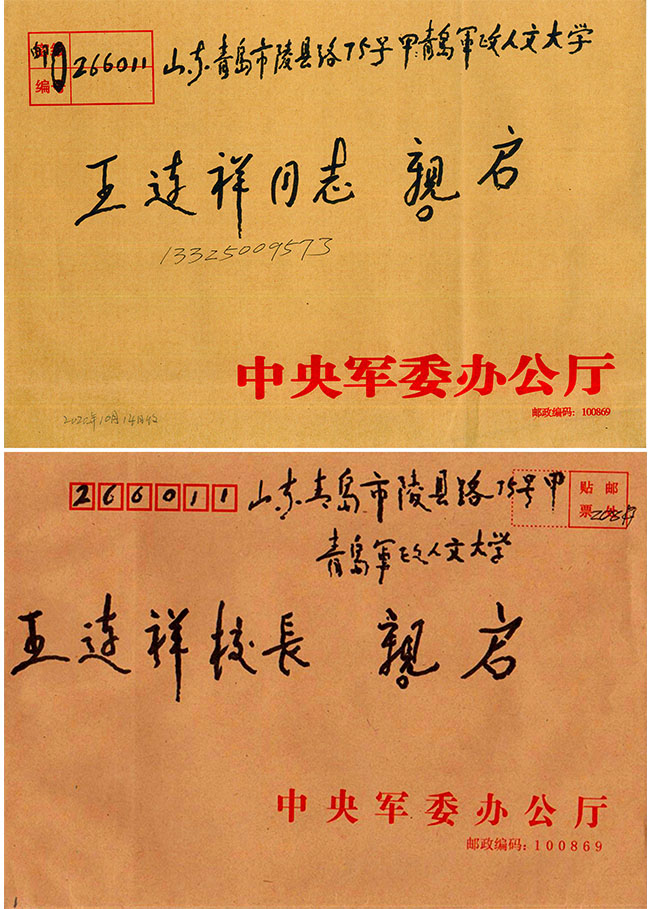 邮
编
266011 山东青岛市陵县路75号甲青岛軍政人文大学
王连祥同志 親启
13325009573
中央军委办公厅
邮政编码：100869
2020年10月14日收
266011 山东青岛市陵县路75号甲
贴 邮
票
青岛軍政人文大学
王连祥校長 親启
中央军委办公厅
邮政编码：100869